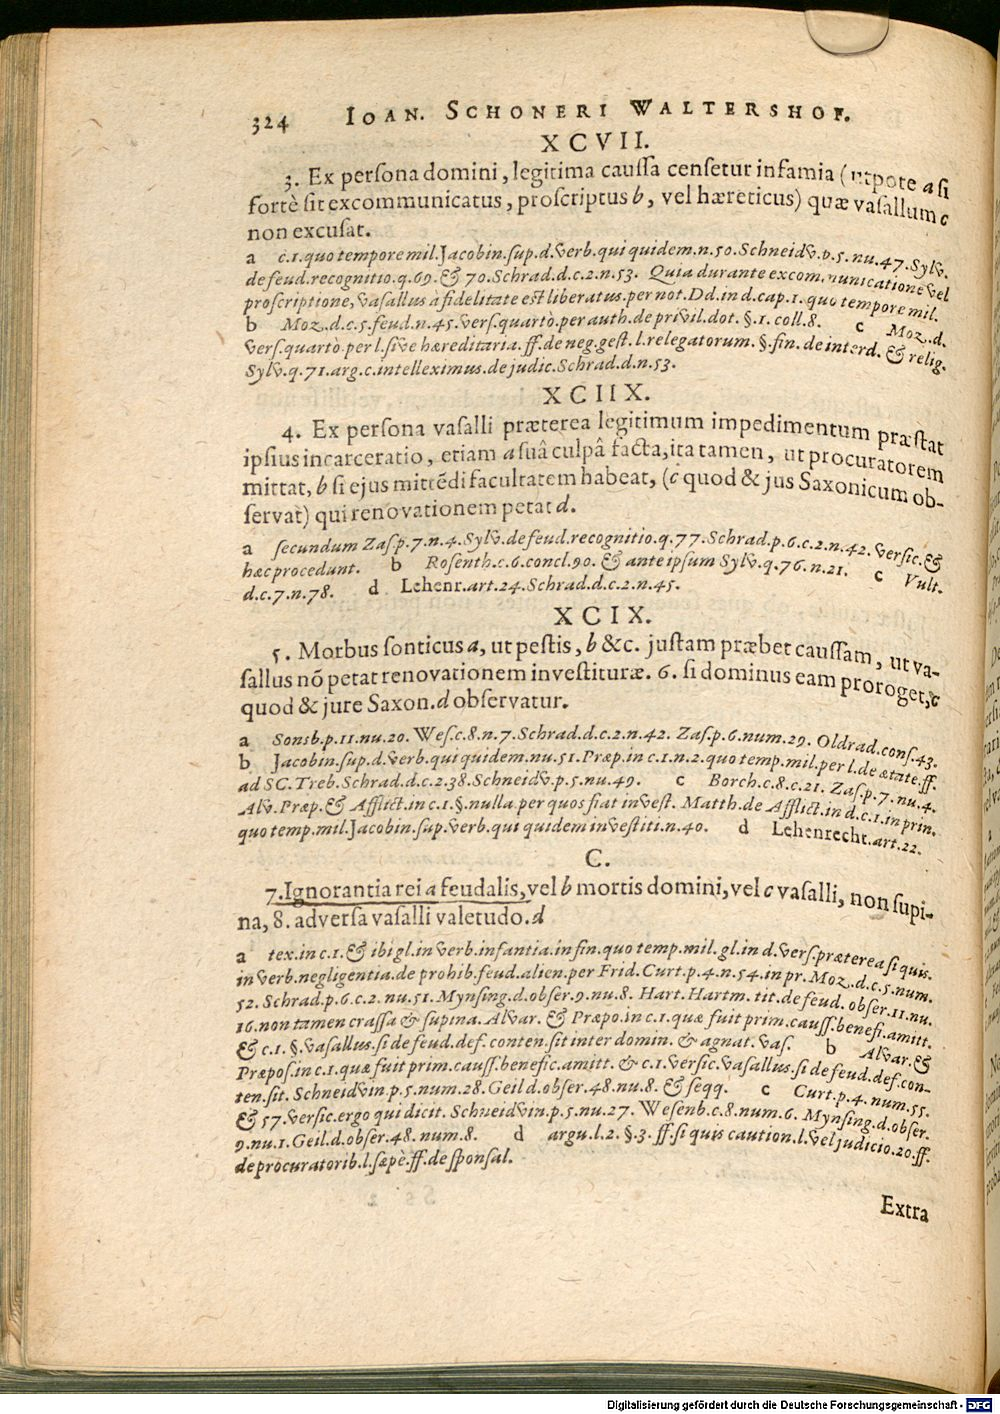 324 IOAN. SCHONERI WALTERSHOF.
XCVII.
3. Ex persona domini, legitima caussa censetur infamia (utpote a si
fortè sit excommunicatus, proscriptus b, vel hæreticus) quæ vasallum c
non excusat.
a c.1.quo tempore mil.Jacobin.sup.d.verb.qui quidem.n.50.Schneidv.p.5.nu.47.Sylv.
de feud.recognitio.q.69.& 70.Schrad.d.c.2.n.53. Quia durante excommunicatione vel
proscriptione, vasallus à fidelitate est liberatus.per not.Dd.in d.cap.1.quo tempore mil.
b Moz.d.c.5.feud.n.45.vers.quartò.per auth.de privil.dot.§.1.coll.8. c Moz.d.
vers.quartò.per l.sive hæreditaria.ff.de neg.gest.l.relegatorum.§.fin.de interd.& relig.
Sylv.q.71.arg.c.intelleximus.de judic.Schrad.d.n.53.
XCIIX.
4. Ex persona vasalli præterea legitimum impedimentum præstat
ipsius incarceratio, etiam a suâ culpâ facta, ita tamen, ut procuratorem
mittat, b si ejus mittēdi facultatem habeat, (c quod & jus Saxonicum ob-
servat) qui renovationem petat d.
a secundum Zas.p.7.n.4.Sylv.de feud.recognitio.q.77.Schrad.p.6.c.2.n.42.versic.&
hæc procedunt. b Rosenth.c.6.concl.90.& ante ipsum Sylv.q.76.n.21. c Vult.
d.c.7.n.78. d Lehenr.art.24.Schrad.d.c.2.n.45.
XCIX.
5. Morbus sonticus a, ut pestis, b &c. justam præbet caussam, ut va-
sallus nō petat renovationem investituræ. 6. si dominus eam proroget, c
quod & jure Saxon.d observatur.
a Sonsb.p.11.nu.20. Wes.c.8.n.7.Schrad.d.c.2.n.42. Zas.p.6.num.29. Oldrad.cons.43.
b Jacobin.sup.d.verb.qui quidem.nu.51.Præp.in c.1.n.2.quo temp.mil.per l.de ætate.ff.
ad SC.Treb.Schrad.d.c.2.38.Schneidv.p.5.nu.49. c Borch.c.8.c.21. Zas.p.7.nu.4.
Alv.Præp.& Afflict.in c.1.§.nulla.per quos fiat invest. Matth.de Afflict.in d.c.1.in prin.
quo temp.mil.Jacobin.sup.verb.qui quidem investiti.n.40. d Lehenrecht.art.22.
C.
7. Ignorantia rei a feudalis, vel b mortis domini, vel c vasalli, non supi-
na, 8. adversa vasalli valetudo.d
a tex.in c.1.& ibi gl.in verb.infantia.in fin.quo temp.mil.gl.in d.vers.præterea si quis.
in verb.negligentia.de prohib.feud.alien.per Frid.Curt.p.4.n.54.in pr.Moz.d.c.5.num.
52.Schrad.p.6.c.2.nu.51.Mynsing.d.obser.9.nu.8. Hart.Hartm.tit.de feud.obser.11.nu.
16.non tamen crassa & supina. Alvar. & Præpo.in c.1.quæ fuit prim.causs.benefi.amitt.
& c.1.§.vasallus.si de feud.def.conten.sit inter domin. & agnat.vas. b Alvar.&
Præpos.in c.1.quæ fuit prim.causs.benefic.amitt. & c.1.versic.vasallus.si de feud.def.con-
ten.sit. Schneidvin.p.5.num.28.Geil d.obser.48.nu.8. & seqq. c Curt.p.4.num.55.
& 57.versic.ergo qui dicit. Schneidvin.p.5.nu.27. Wesenb.c.8.num.6. Mynsing.d.obser.
9.nu.1.Geil d.obser.48.num.8. d argu.l.2.§.3.ff.si quis caution.l.vel judicio.20.ff.
de procuratorib.l.sæpè.ff.de sponsal.
Extra
Digitalisierung gefördert durch die Deutsche Forschungsgemeinschaft - DFG